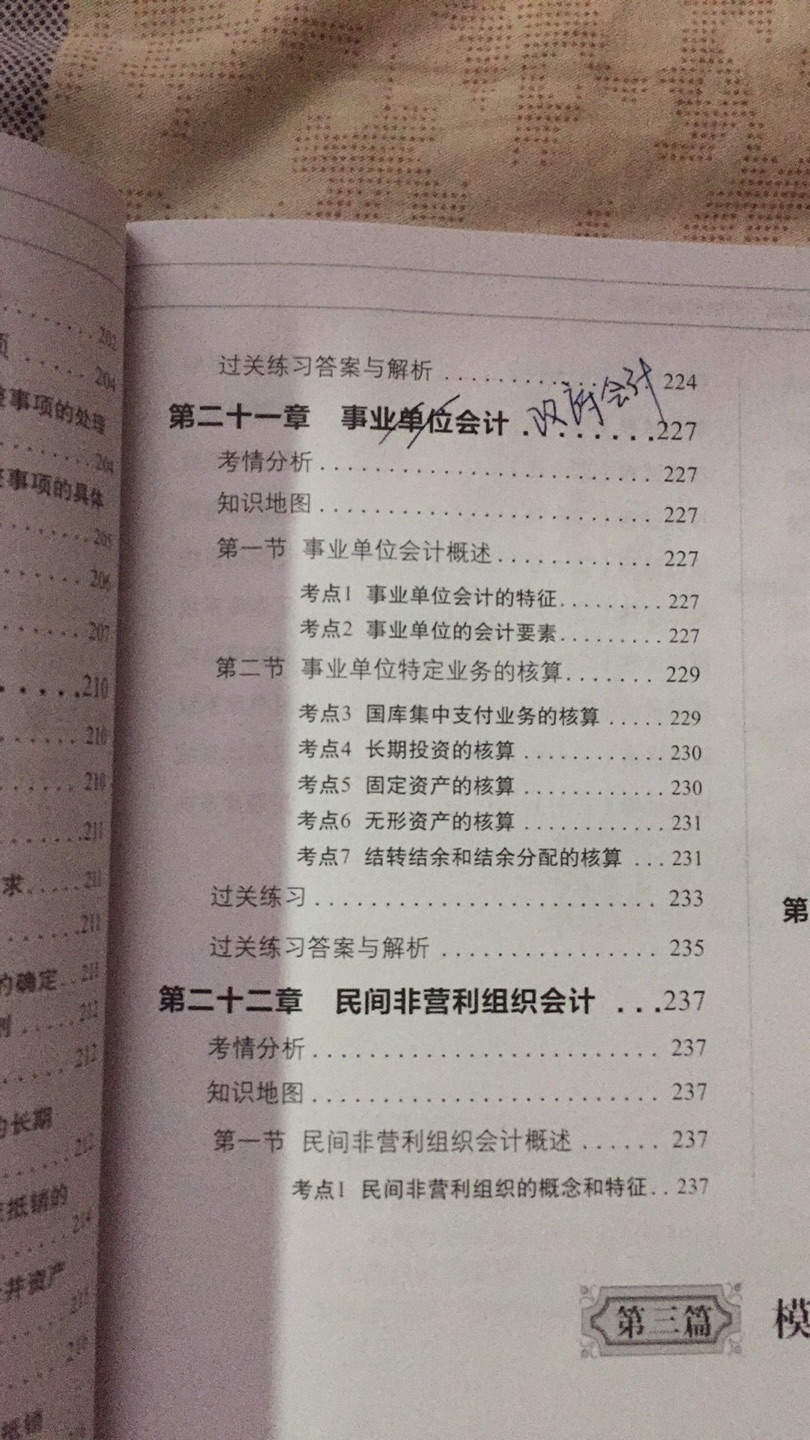 202
项 ..... 204
整事项的处理
204
整事项的具体
205
206
207
210
210
210
211
求.....211
211
的确定..211
212
212
的长期
212
抵销的
214
并资产
抵销
过关练习答案与解析 ............ 224
第二十一章 事业单位会计 ........227
政府会计
考情分析.......................... 227
知识地图.......................... 227
第一节 事业单位会计概述............ 227
考点1 事业单位会计的特征......... 227
考点2 事业单位的会计要素......... 227
第二节 事业单位特定业务的核算....... 229
考点3 国库集中支付业务的核算 ..... 229
考点4 长期投资的核算 ............ 230
考点5 固定资产的核算 ............ 230
考点6 无形资产的核算 ............ 231
考点7 结转结余和结余分配的核算 ... 231
过关练习.......................... 233
过关练习答案与解析 ................. 235
第二十二章 民间非营利组织会计 ...237
考情分析.......................... 237
知识地图.......................... 237
第一节 民间非营利组织会计概述 ...... 237
考点1 民间非营利组织的概念和特征.. 237
第三篇 模
第